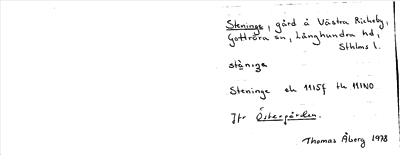 Steninge, gård å Västra Rickeby,
Gottröra sn, Långhundra hd,
Sthlms l.
stä̀nιŋε
Steninge ek 11I5f tk 11INO
Jfr Östergården.
Thomas Åberg 1978